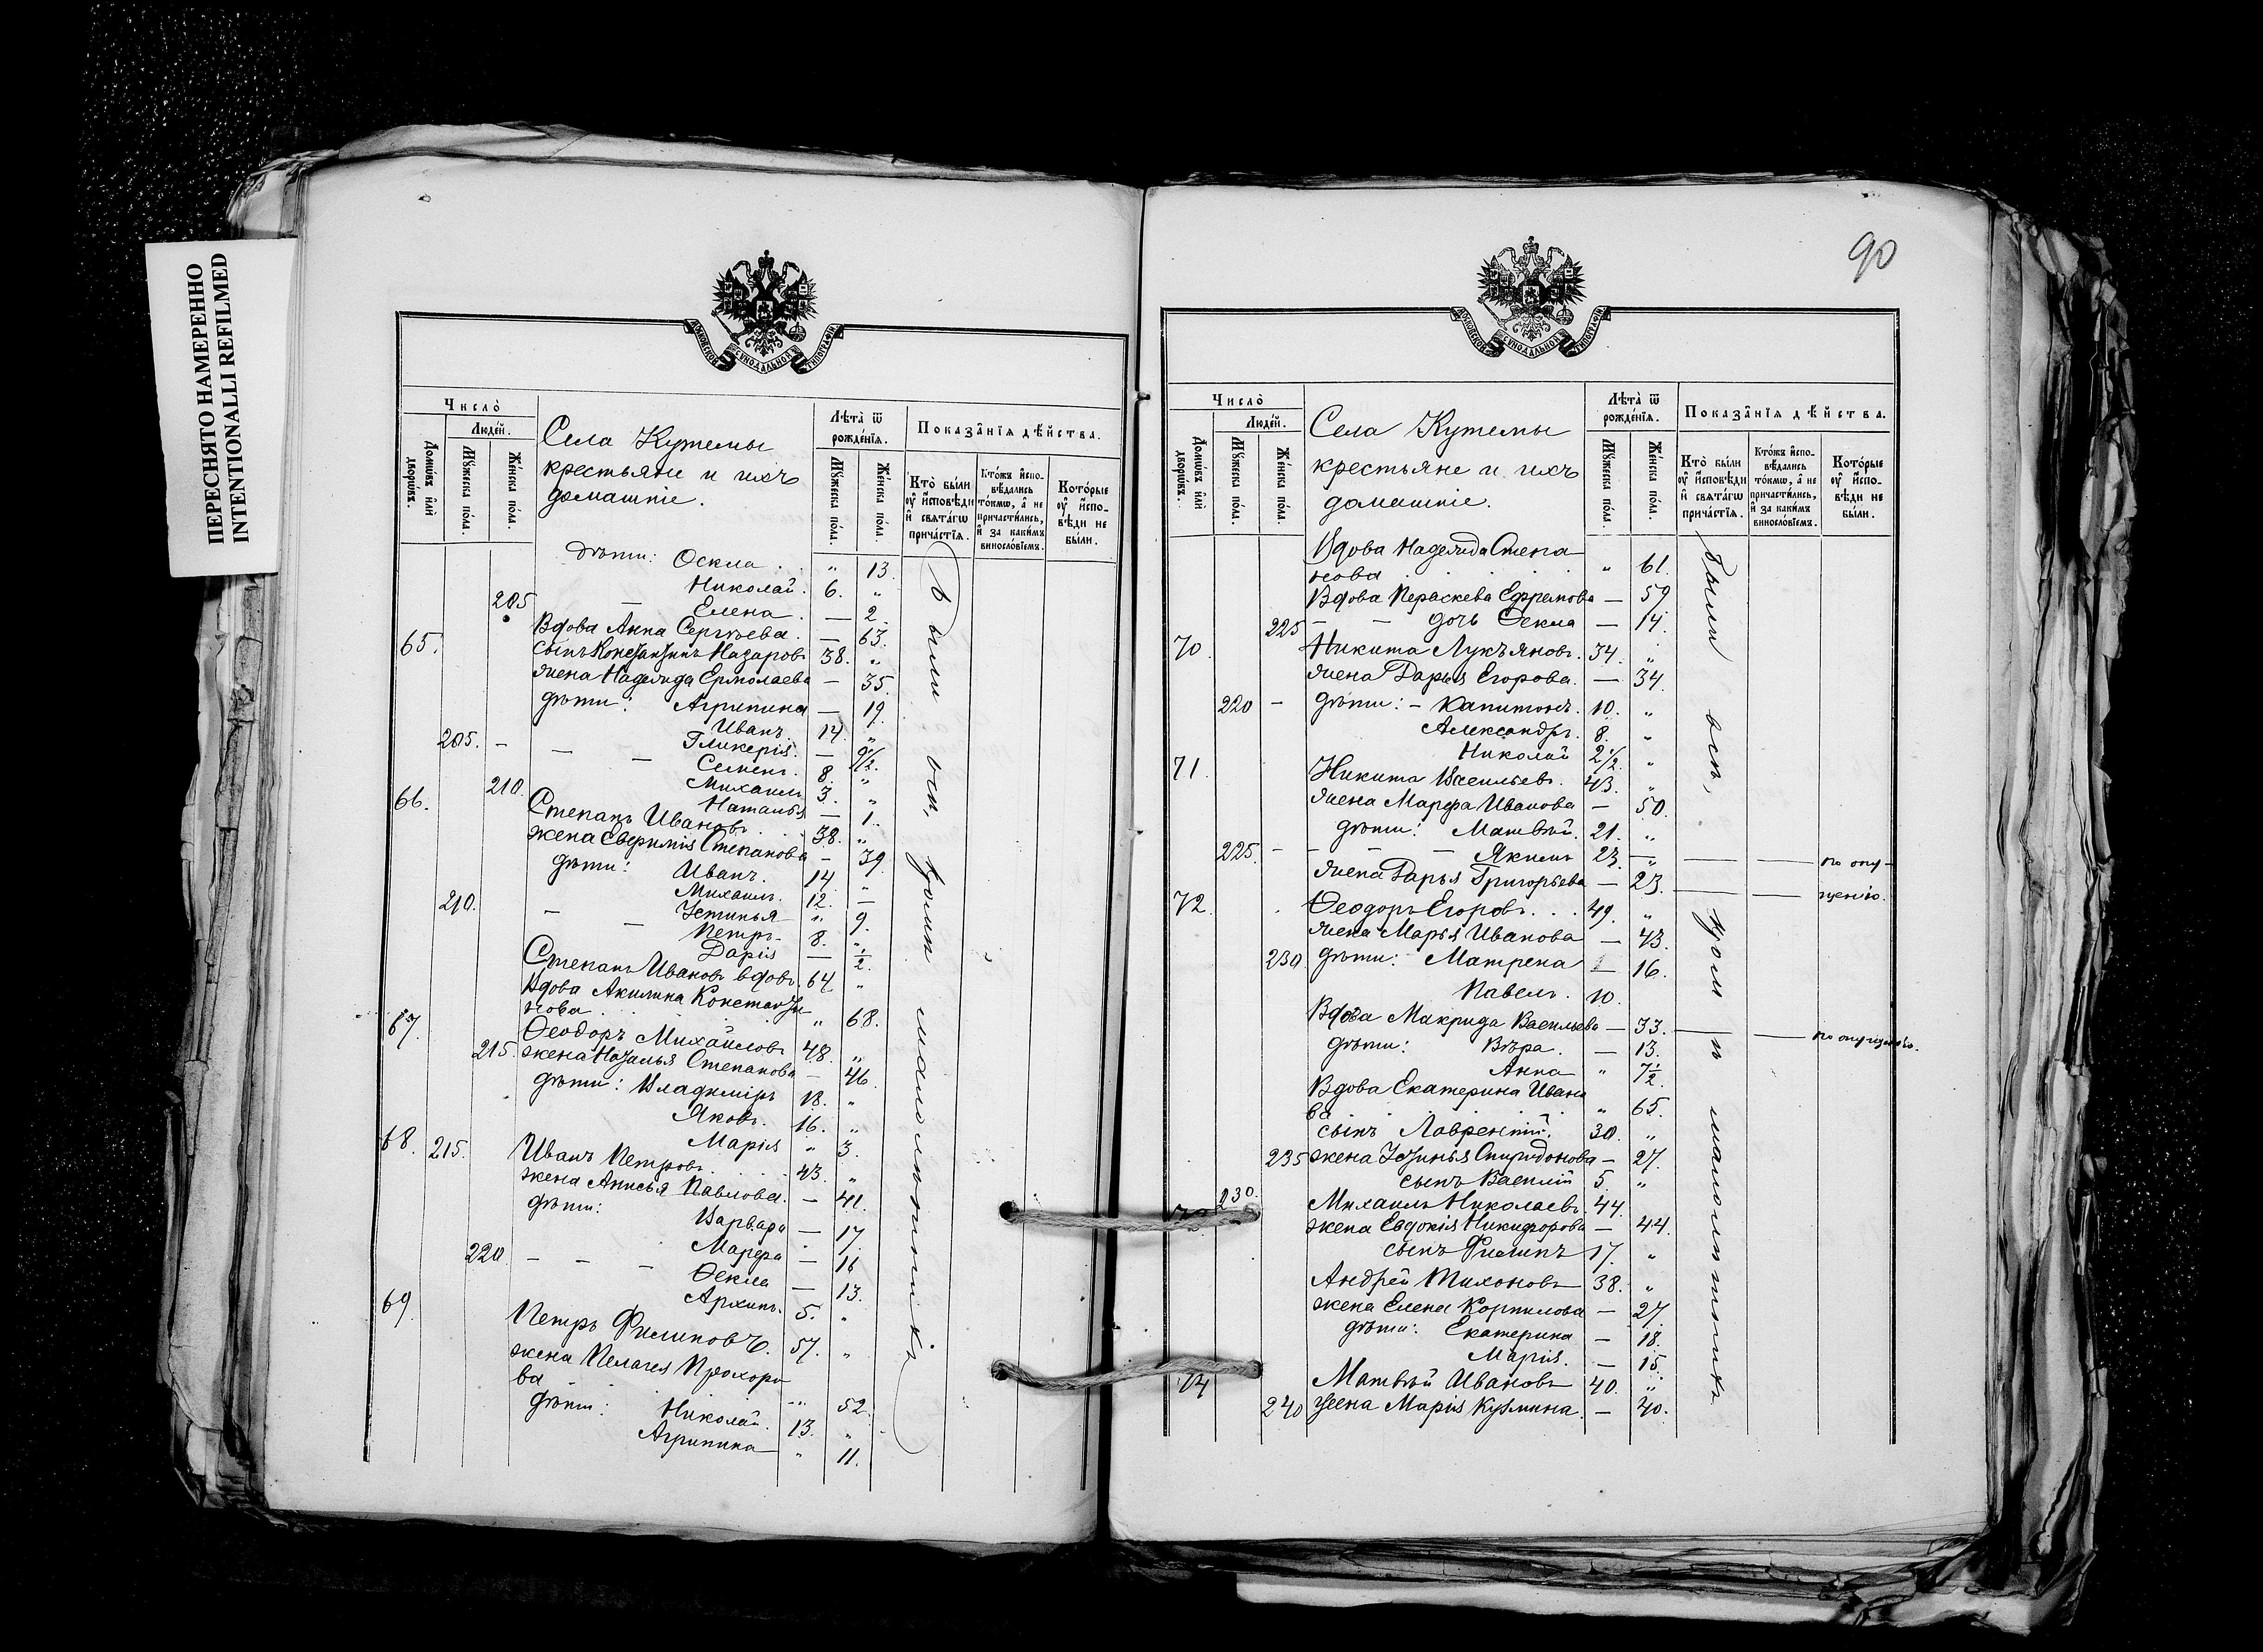 ПЕРЕСНЯТО НАМЕРЕННО
INTENTIONALLI REFILMED
МОСКОВСКОЙ СѴНОДАЛЬНОЙ ТИПОГРАФІИ
Число̀
Люде́й.
Домѡ́въ и҆лѝ дворѡ́въ.
Мꙋ́жеска по́ла.
Же́нска по́ла.
Села Кутемы
крестьяне и ихъ
домашніе.
Лѣ́та ѿ рожде́нїѧ.
Мꙋ́жеска по́ла.
Же́нска по́ла.
Показа́нїѧ дѣ́йства.
Кто̀ бы́ли оу҆ и҆сповѣ́ди и҆ свѧта́гѡ прича́стїѧ.
Кто́жъ и҆сповѣ́дались то́кмѡ, а҆ не причасти́лись, и҆ за каки́мъ виносло́вїемъ.
Кото́рые оу҆ и҆сповѣ́ди не бы́ли.
дѣти: Ѳекла . . „ 13.
Николай. 6. „
205 — Елена . — 2.
65. Вдова Анна Сергѣева. — 63.
сынъ Константинъ Назаровъ 38. „
жена Надежда Ермолаева — 35.
дѣти: Агрипина — 19.
Иванъ. 14. „
205. — — Гликерія. — 9½.
— Семенъ. 8. „
210. Михаилъ 3. „
Наталья — 1.
66. Степанъ Ивановъ . . 38. „
жена Евфимія Степанова — 39.
дѣти: Иванъ. 14. „
Михаилъ. 12. —
210. — Устинья „ 9.
— Петръ. 8. „
Дарія — ½.
Степанъ Ивановъ вдовъ. 64. „
Вдова Акилина Константи
нова . . . . „ 68.
67. Ѳеодоръ Михайловъ 48. „
215. жена Наталья Степанова — 46.
дѣти: Владиміръ 18. „
Яковъ. 16. „
Марія „ 3.
68. 215. Иванъ Петровъ. . . 43. „
жена Анисья Павлова. — 41.
дѣти: Варвара — 17.
Марфа — 16
220. — — — Ѳекла — 13.
Архипъ. 5. „
69. Петръ Филиповъ. 57. „
жена Пелагея Прохоро
ва „ 52.
дѣти: Николай. 13. „
Агрипина „ 11.
Были всѣ, кромѣ малолѣтнихъ
90
МОСКОВСКОЙ СѴНОДАЛЬНОЙ ТИПОГРАФІИ
Число̀
Люде́й.
Домѡ́въ и҆лѝ дворѡ́въ.
Мꙋ́жеска по́ла.
Же́нска по́ла.
Села Кутемы
крестьяне и ихъ
домашніе.
Лѣ́та ѿ рожде́нїѧ.
Мꙋ́жеска по́ла.
Же́нска по́ла.
Показа́нїѧ дѣ́йства.
Кто̀ бы́ли оу҆ и҆сповѣ́ди и҆ свѧта́гѡ прича́стїѧ.
Кто́жъ и҆сповѣ́дались то́кмѡ, а҆ не причасти́лись, и҆ за каки́мъ виносло́вїемъ.
Кото́рые оу҆ и҆сповѣ́ди не бы́ли.
Вдова Надежда Степа
нова . . . . „ 61.
Вдова Пераскева Ефремова — 59
225 — — дочь Ѳекла — 14.
70. Никита Лукъяновъ. 34. „
жена Дарья Егорова. — 34.
220 — дѣти: — Капитонъ. 10. „
Александръ. 8. „
Николай 2½. „
71. Никита Васильевъ. 43. „
жена Марфа Иванова — 50.
дѣти: Матвѣй. 21. „
225. — — — — Якимъ 23. „ — — по опу-
жена Дарья Григорьева — 23. — — щенію.
72. Ѳеодоръ Егоровъ. . . 49. „
жена Марья Иванова — 43.
230. дѣти: Матрена — 16.
Павелъ. 10.
Вдова Макрида Васильева — 33. — — по опущенію.
дѣти: Вѣра. — 13.
Анна „ 7½.
Вдова Екатерина Ивано
ва . . . . „ 65.
сынъ Лаврентій. 30. „
235 жена Устинья Спиридонова — 27.
сынъ Василій 5. „
230. Михаилъ Николаевъ. 44.
жена Евдокія Никифорова — 44.
сынъ Филипъ 17. „
Андрей Тихоновъ 38. „
жена Елена Корнилова — 27.
дѣти: Екатерина — 18.
Марія. — 15.
74 Матвѣй Ивановъ 40. „
240 жена Марія Кузмина. — 40.
Были всѣ, кромѣ малолѣтнихъ